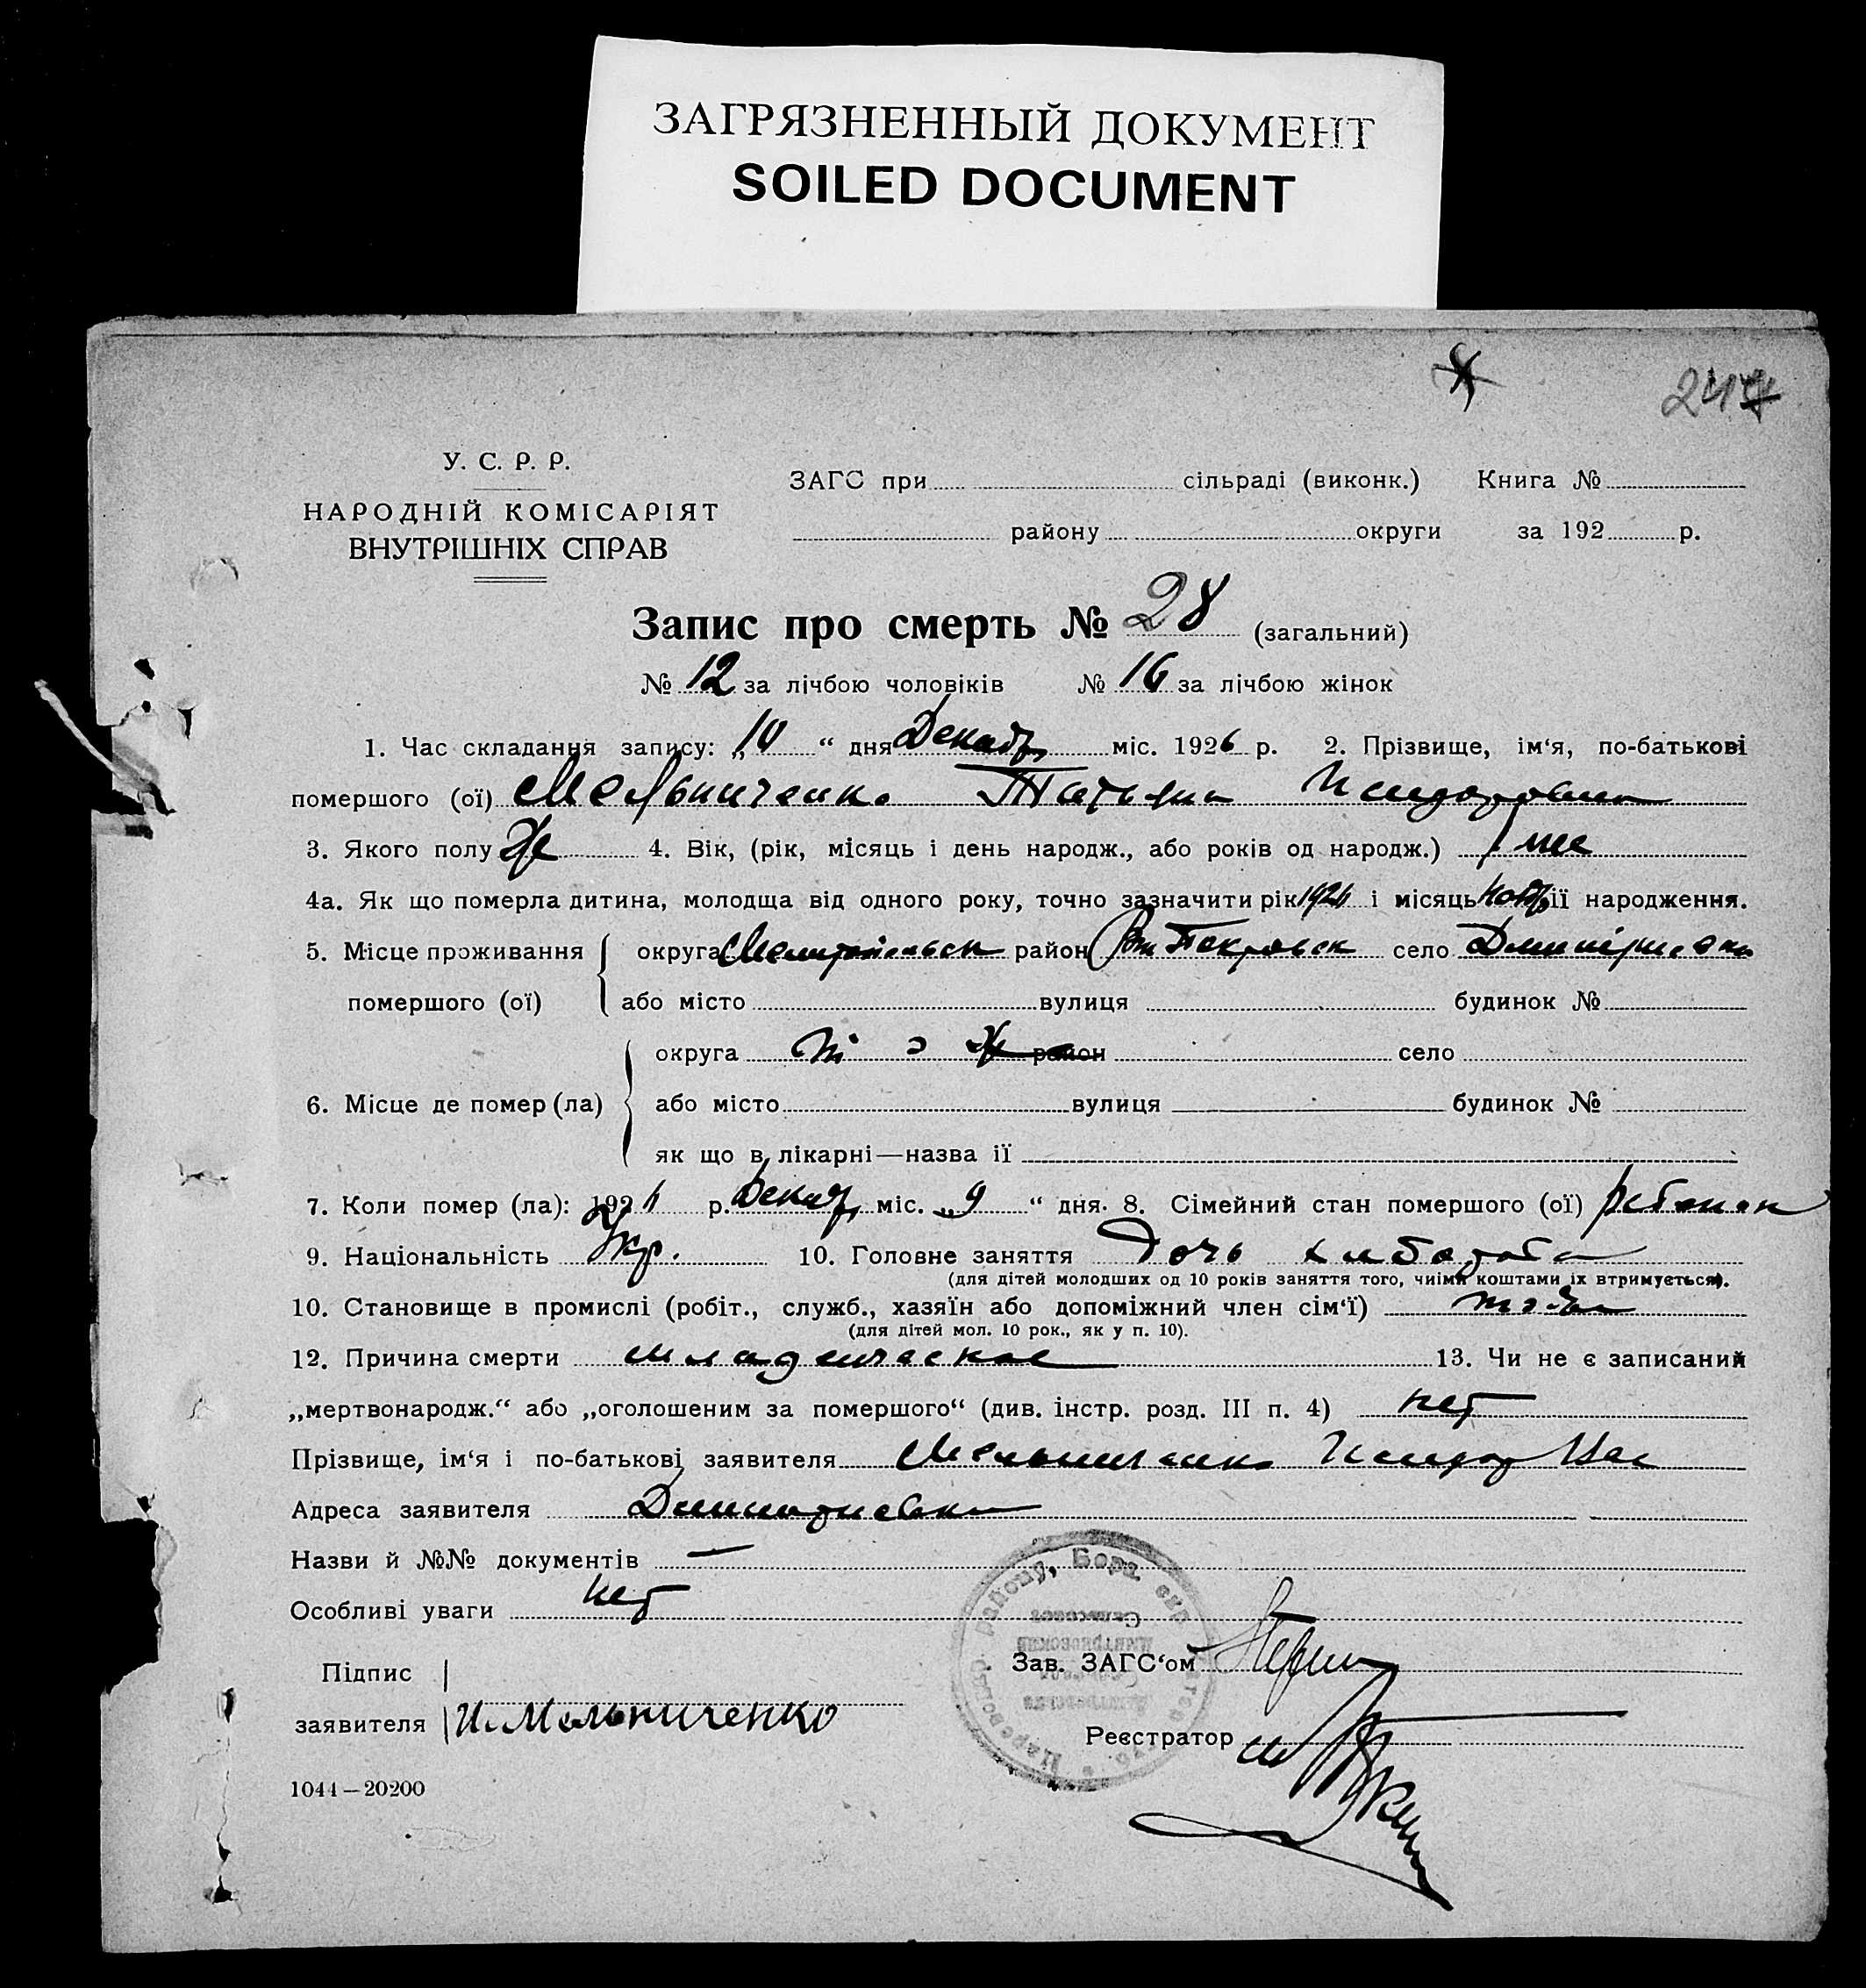 ЗАГРЯЗНЕННЫЙ ДОКУМЕНТ
SOILED DOCUMENT
247
У. С. Р. Р.
НАРОДНІЙ КОМІСАРІЯТ
ВНУТРІШНІХ СПРАВ
ЗАГС при сільраді (виконк.) Книга №
району округи за 192 р.
Запис про смерть № 28 (загальний)
№ 12 за лічбою чоловіків № 16 за лічбою жінок
1. Час складання запису: „10“ дня Декабр міс. 1926 р. 2. Прізвище, ім‘я, по-батькові
помершого (ої) Мельниченко Татьяна Исидоровна
3. Якого полу Же 4. Вік, (рік, місяць і день народж., або років од народж.) 1 мес
4а. Як що померла дитина, молодша від одного року, точно зазначити рік 1926 і місяць Нояб її народження.
5. Місце проживання округа Мелитопольск район Покровск село Дмитриевка
помершого (ої) або місто вулиця будинок №
округа район село
6. Місце де помер (ла) або місто вулиця будинок №
як що в лікарні—назва її
7. Коли помер (ла): 1926 р. Декаб міс. „9“ дня. 8. Сімейний стан помершого (ої) ребенок
9. Національність Укр. 10. Головне заняття Дочь хлебороба
(для дітей молодших од 10 років заняття того, чиїми коштами їх втримується).
10. Становище в промислі (робіт., служб., хазяїн або допоміжний член сім‘ї)
(для дітей мол. 10 рок., як у п. 10).
12. Причина смерти младенческое 13. Чи не є записаний
„мертвонародж.“ або „оголошеним за помершого“ (див. інстр. розд. III п. 4) нет
Прізвище, ім‘я і по-батькові заявителя Мельниченко Исидор
Адреса заявителя Дмитриевка
Назви й №№ документів —
Особливі уваги нет
Підпис
заявителя И. Мельниченко
Зав. ЗАГС‘ом
Реєстратор
1044—20200